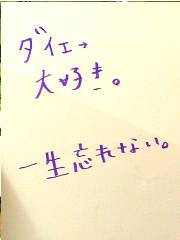 ダイエー
大好き。
一生忘れない。